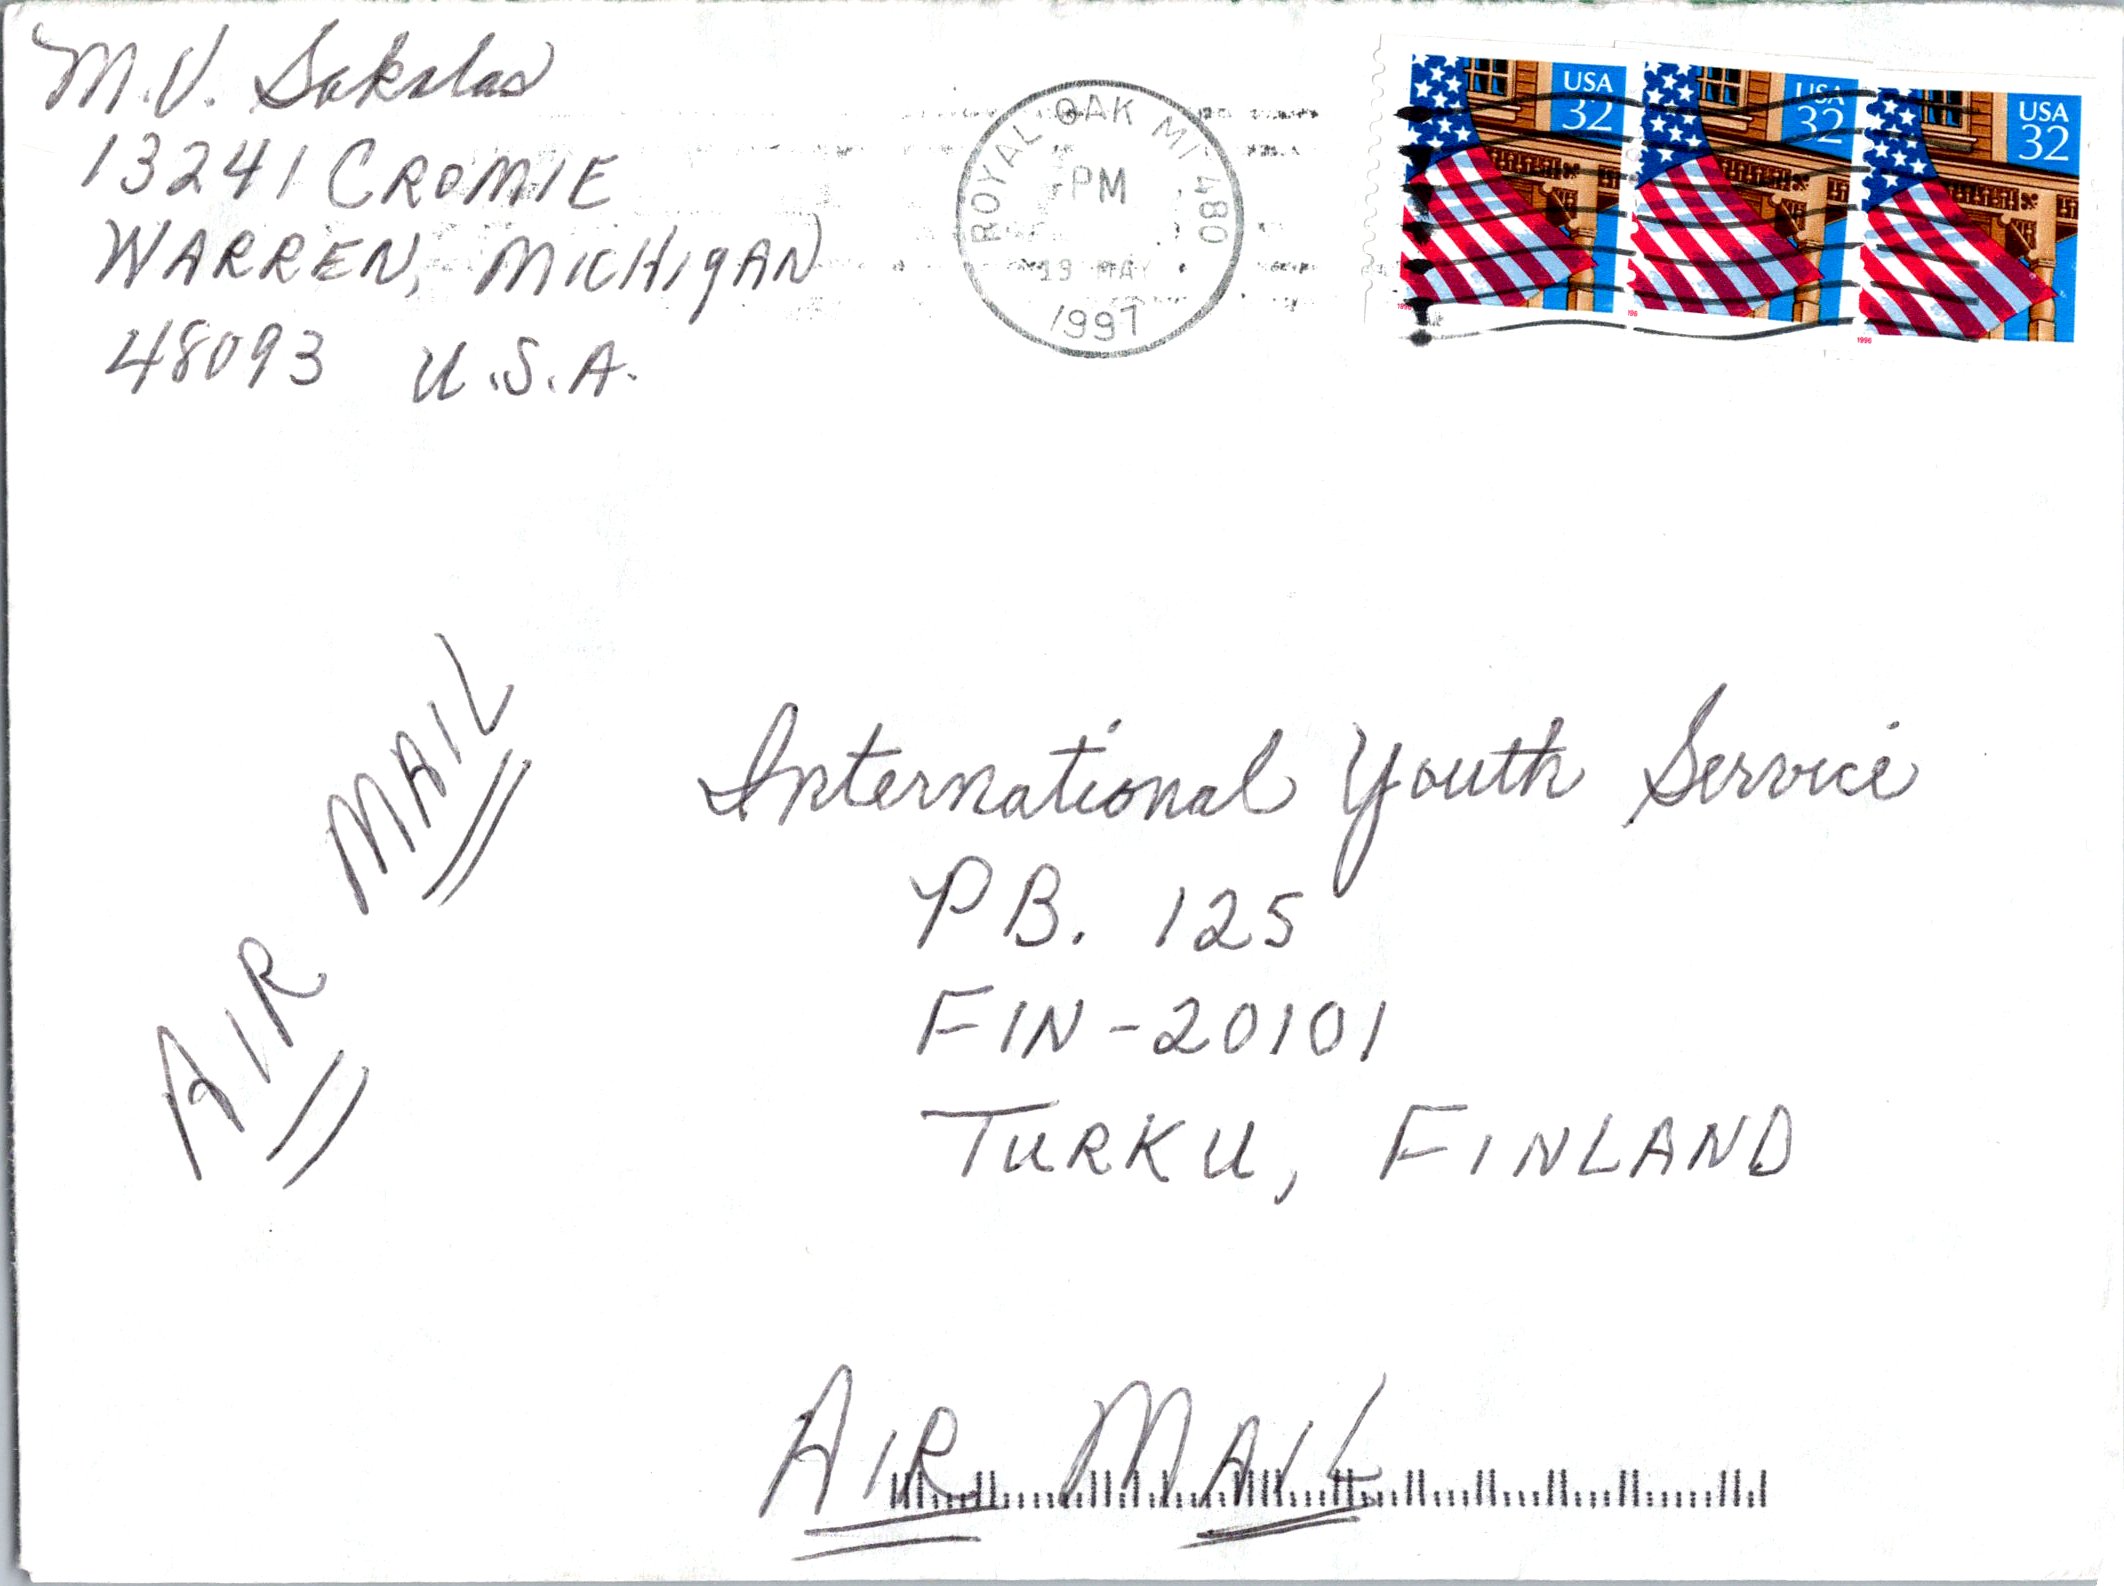 M.V. Sakalas
13241 CROMIE
WARREN, MICHIGAN
48093 U.S.A.
ROYAL OAK MI 480
PM
19 MAY
1997
USA
32
USA
32
USA
32
1996
AIR MAIL
International Youth Service
PB. 125
FIN-20101
TURKU, FINLAND
AIR MAIL